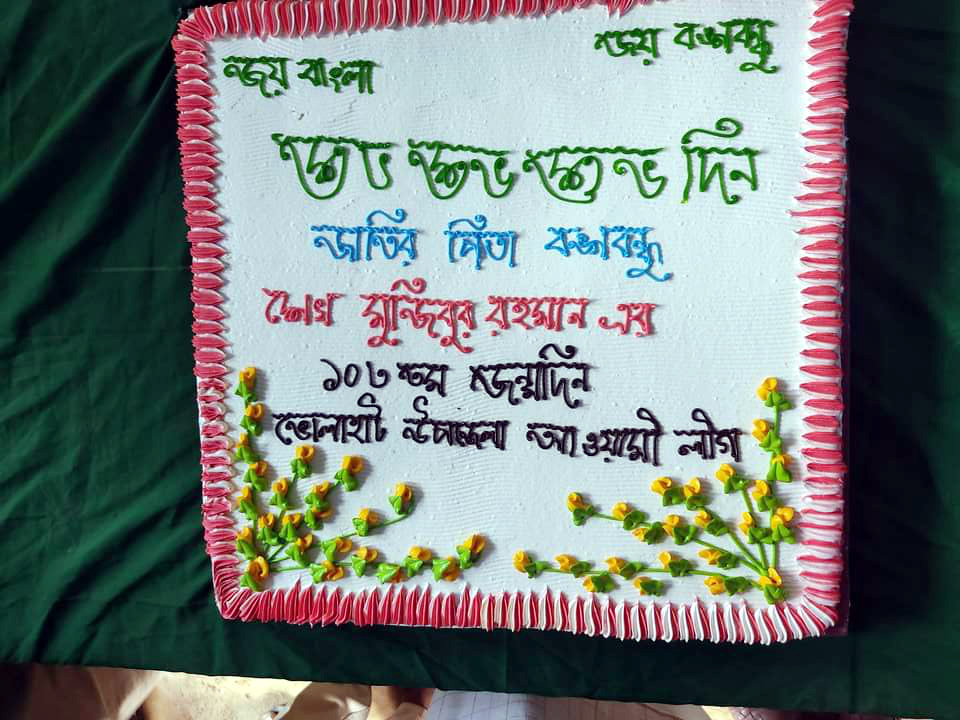 জয় বাংলা
জয় বঙ্গবন্ধু
শুভ শুভ শুভ দিন
জাতির পিতা বঙ্গবন্ধু
শেখ মুজিবুর রহমান এর
১০৩ তম জন্মদিন
ভোলাহাট উপজেলা আওয়ামী লীগ